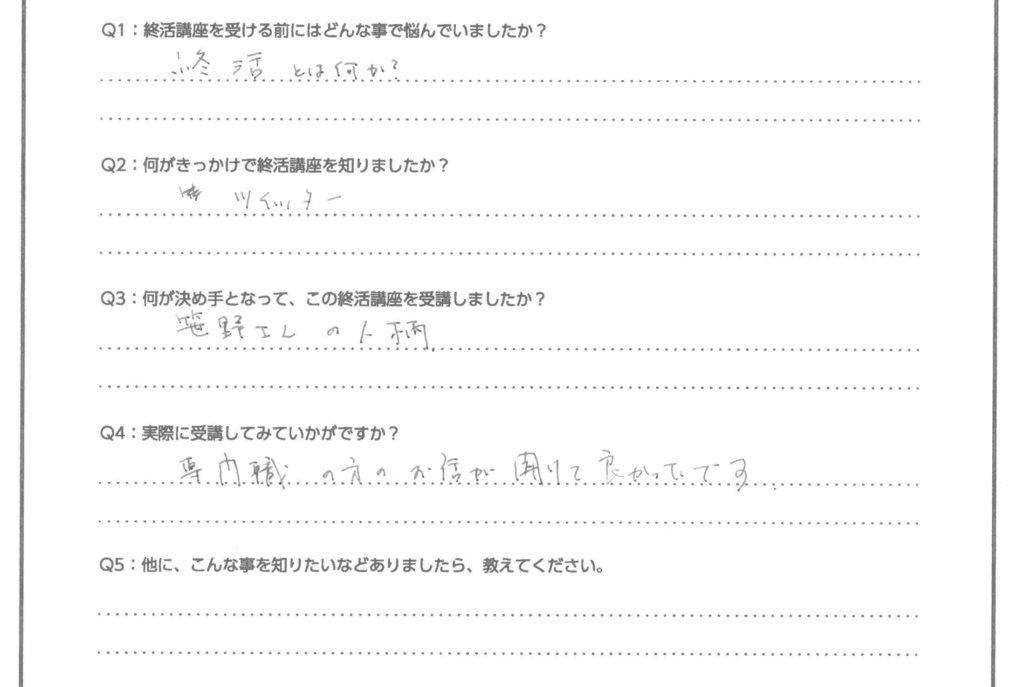 Q1：終活講座を受ける前にはどんな事で悩んでいましたか？
終活とは何か？
Q2：何がきっかけで終活講座を知りましたか？
ツイッター
Q3：何が決め手となって、この終活講座を受講しましたか？
笹野エレの人柄
Q4：実際に受講してみていかがですか？
専門職の方のお話が聞けて良かったです
Q5：他に、こんな事を知りたいなどありましたら、教えてください。